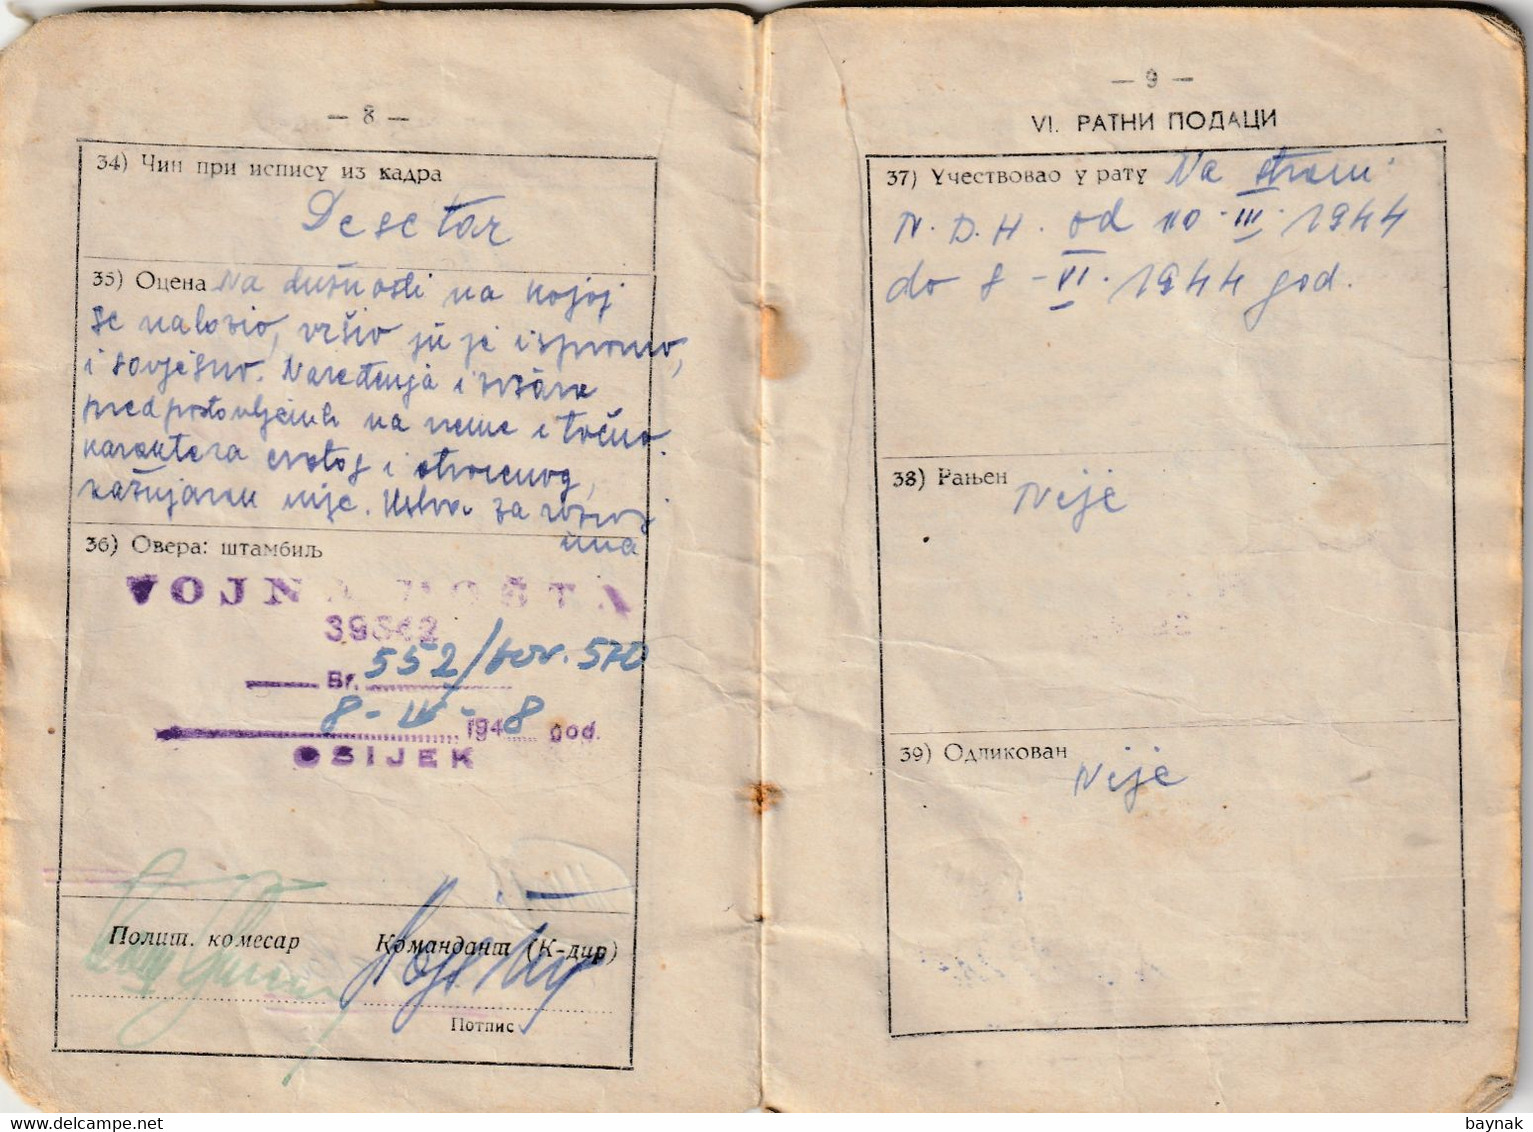 — 8 —
34) Чин при испису из кадра
Desetar
35) Оцена Na dužnosti na kojoj
se nalazio, vršio ju je ispravno,
i savjesno. Naređenja izvšava
predpostavljenih na vreme i točno.
karaktera čvrstog i otvorenog,
kažnjavan nije. Uslova za razvoj
ima
36) Овера: штамбиљ
VOJNA POŠTA
39342
Br. 552/pov. 570
8-IV-1948 god.
OSIJEK
Полит. комесар Командант (К-дир)
Потпис
— 9 —
VI. РАТНИ ПОДАЦИ
37) Учествовао у рату Na strani
N.D.H. od 10.III.1944
do 8-VI.1944 god.
38) Рањен Nije
39) Одликован
Nije
www.delcampe.net
baynak